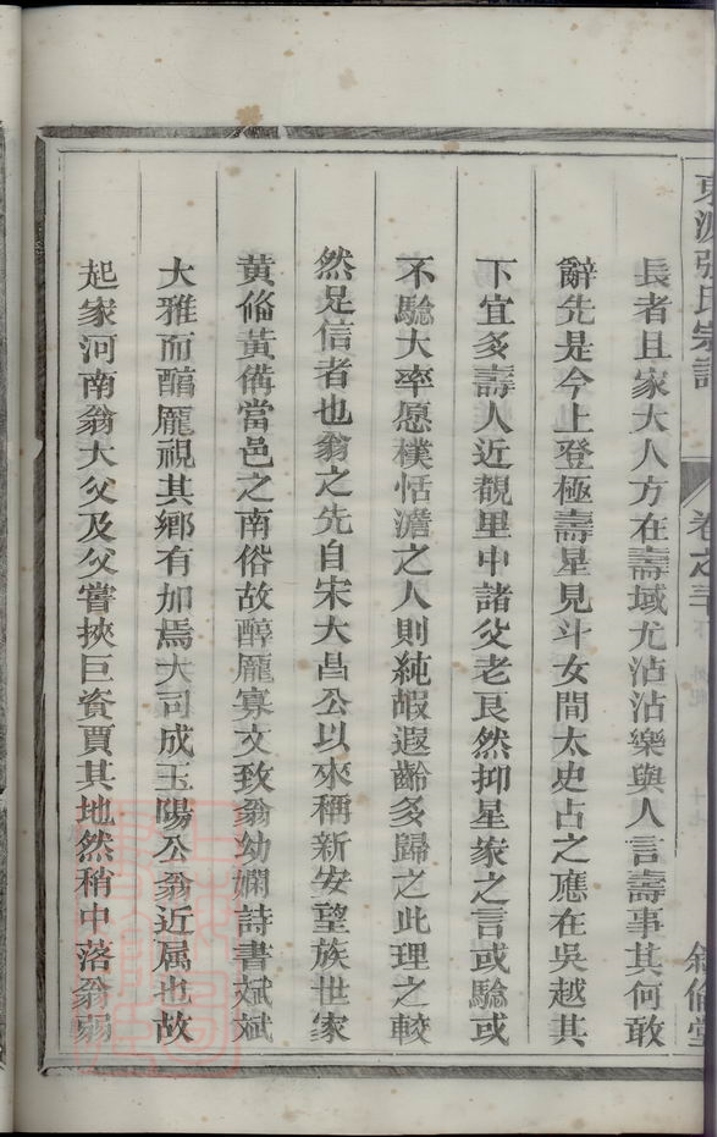 東源張氏宗譜 卷之三十 敘倫堂
長者且家大人方在壽域尤沾沾樂與人言壽事其何敢
辭先是今上登極壽星見斗女間太史占之應在吳越其
下宜多壽人近覩里中諸父老良然抑星家之言或驗或
不驗大率愿樸恬澹之人則純嘏遐齡多歸之此理之較
然足信者也翁之先自宋大昌公以來稱新安望族世家
黃備黃備當邑之南俗故醇龐寡文致翁幼嫻詩書斌斌
大雅而醕龐視其鄉有加焉大司成玉陽公翁近属也故
起家河南翁大父及父嘗挾巨資賈其地然稍中落翁弱